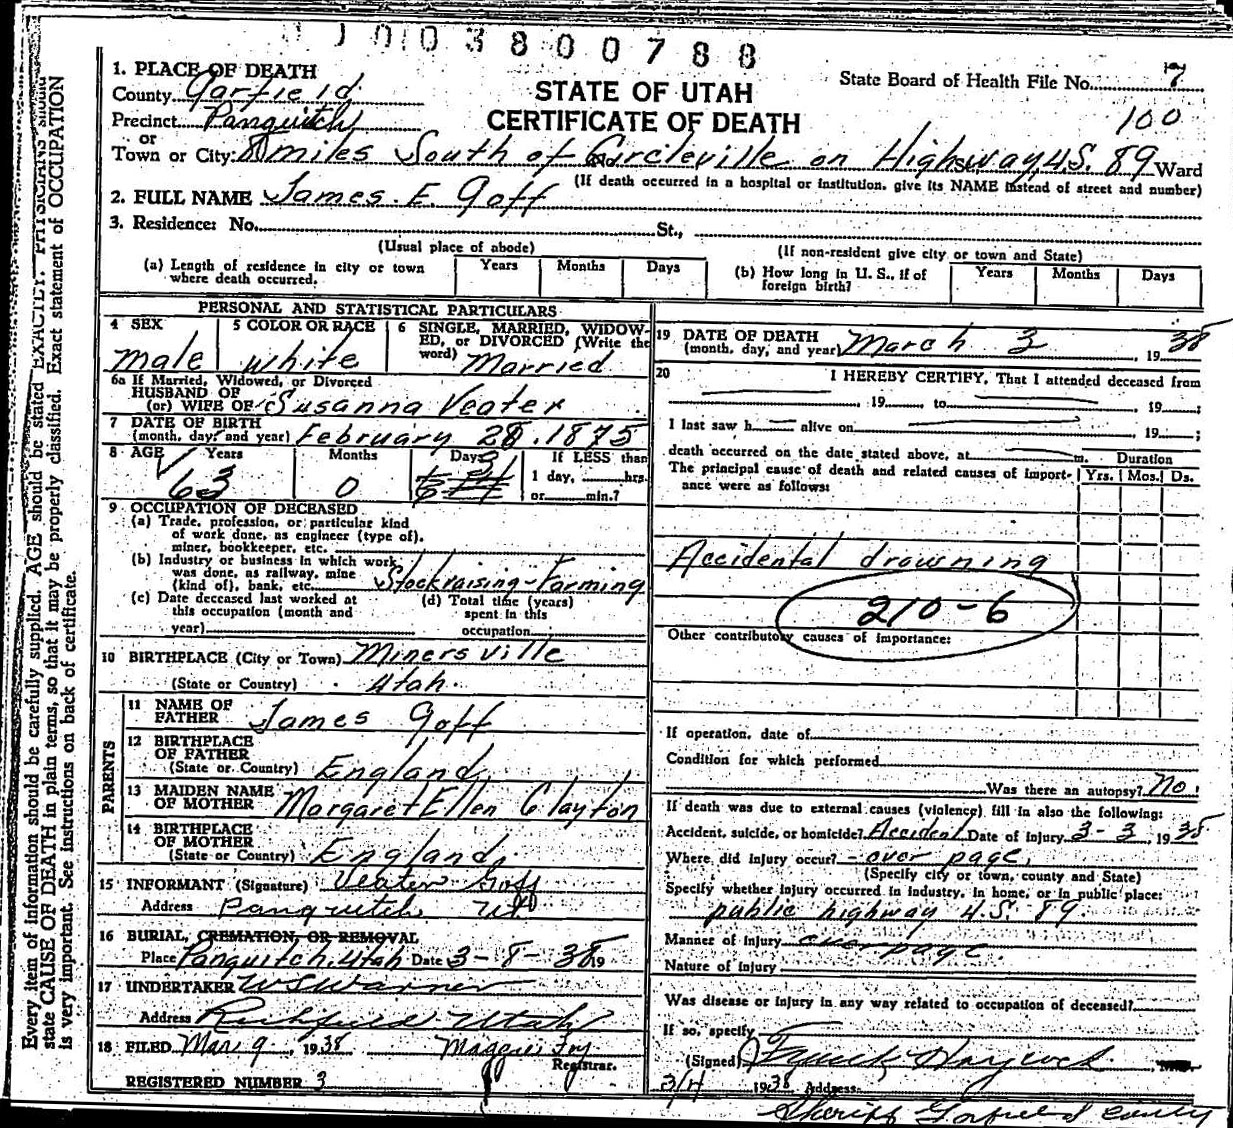 1003800788
1. PLACE OF DEATH
County Garfield
Precinct Panguitch
or
Town or City: 8 miles South of Circleville on Highway, U.S. 89 Ward
STATE OF UTAH
CERTIFICATE OF DEATH
State Board of Health File No. 7
100
(If death occurred in a hospital or institution, give its NAME instead of street and number)
2. FULL NAME James E Goff
3. Residence: No. St.,
(Usual place of abode) (If non-resident give city or town and State)
(a) Length of residence in city or town where death occurred. Years Months Days
(b) How long in U. S., if of foreign birth? Years Months Days
PERSONAL AND STATISTICAL PARTICULARS
4 SEX male
5 COLOR OR RACE white
6 SINGLE, MARRIED, WIDOWED, or DIVORCED (Write the word) Married
6a If Married, Widowed, or Divorced
HUSBAND OF
(or) WIFE OF Susanna Veater
7 DATE OF BIRTH
(month, day, and year) February 28, 1875
8 AGE Years Months Days If LESS than
63 0 3 1 day, hrs.
or min.?
9 OCCUPATION OF DECEASED
(a) Trade, profession, or particular kind
of work done, as engineer (type of),
miner, bookkeeper, etc.
(b) Industry or business in which work
was done, as railway, mine
(kind of), bank, etc. Stockraising-Farming
(c) Date deceased last worked at
this occupation (month and
year)
(d) Total time (years)
spent in this
occupation
10 BIRTHPLACE (City or Town) Minersville
(State or Country) Utah.
PARENTS
11 NAME OF
FATHER James Goff
12 BIRTHPLACE
OF FATHER
(State or Country) England
13 MAIDEN NAME
OF MOTHER Margaret Ellen Clayton
14 BIRTHPLACE
OF MOTHER
(State or Country) England
15 INFORMANT (Signature) Veater Goff
Address Panguitch Ut
16 BURIAL, CREMATION, OR REMOVAL
Place Panguitch, Utah Date 3-8-38 19
17 UNDERTAKER W S Warner
Address Richfield Utah
18 FILED Mar 9, 1938 Maggie Foy
Registrar.
REGISTERED NUMBER 3
19 DATE OF DEATH
(month, day, and year) March 3, 1938
20 I HEREBY CERTIFY, That I attended deceased from
, 19 to , 19 ;
I last saw h alive on , 19 ;
death occurred on the date stated above, at m. Duration
The principal cause of death and related causes of importance were as follows: Yrs. Mos. Ds.
Accidental drowning
210-6
Other contributory causes of importance:
If operation, date of
Condition for which performed
Was there an autopsy? No
If death was due to external causes (violence) fill in also the following:
Accident, suicide, or homicide? Accident Date of Injury 3-3 1938
Where did injury occur? - over page.
(Specify city or town, county and State)
Specify whether injury occurred in industry, in home, or in public place:
public highway U.S. 89.
Manner of Injury over page.
Nature of Injury
Was disease or injury in any way related to occupation of deceased?
If so, specify
(Signed) Haycock
1938 Address
Sheriff Garfield County
Every item of information should be carefully supplied. AGE should be stated EXACTLY. PHYSICIANS should
state CAUSE OF DEATH in plain terms, so that it may be properly classified. Exact statement of OCCUPATION
is very important. See instructions on back of certificate.